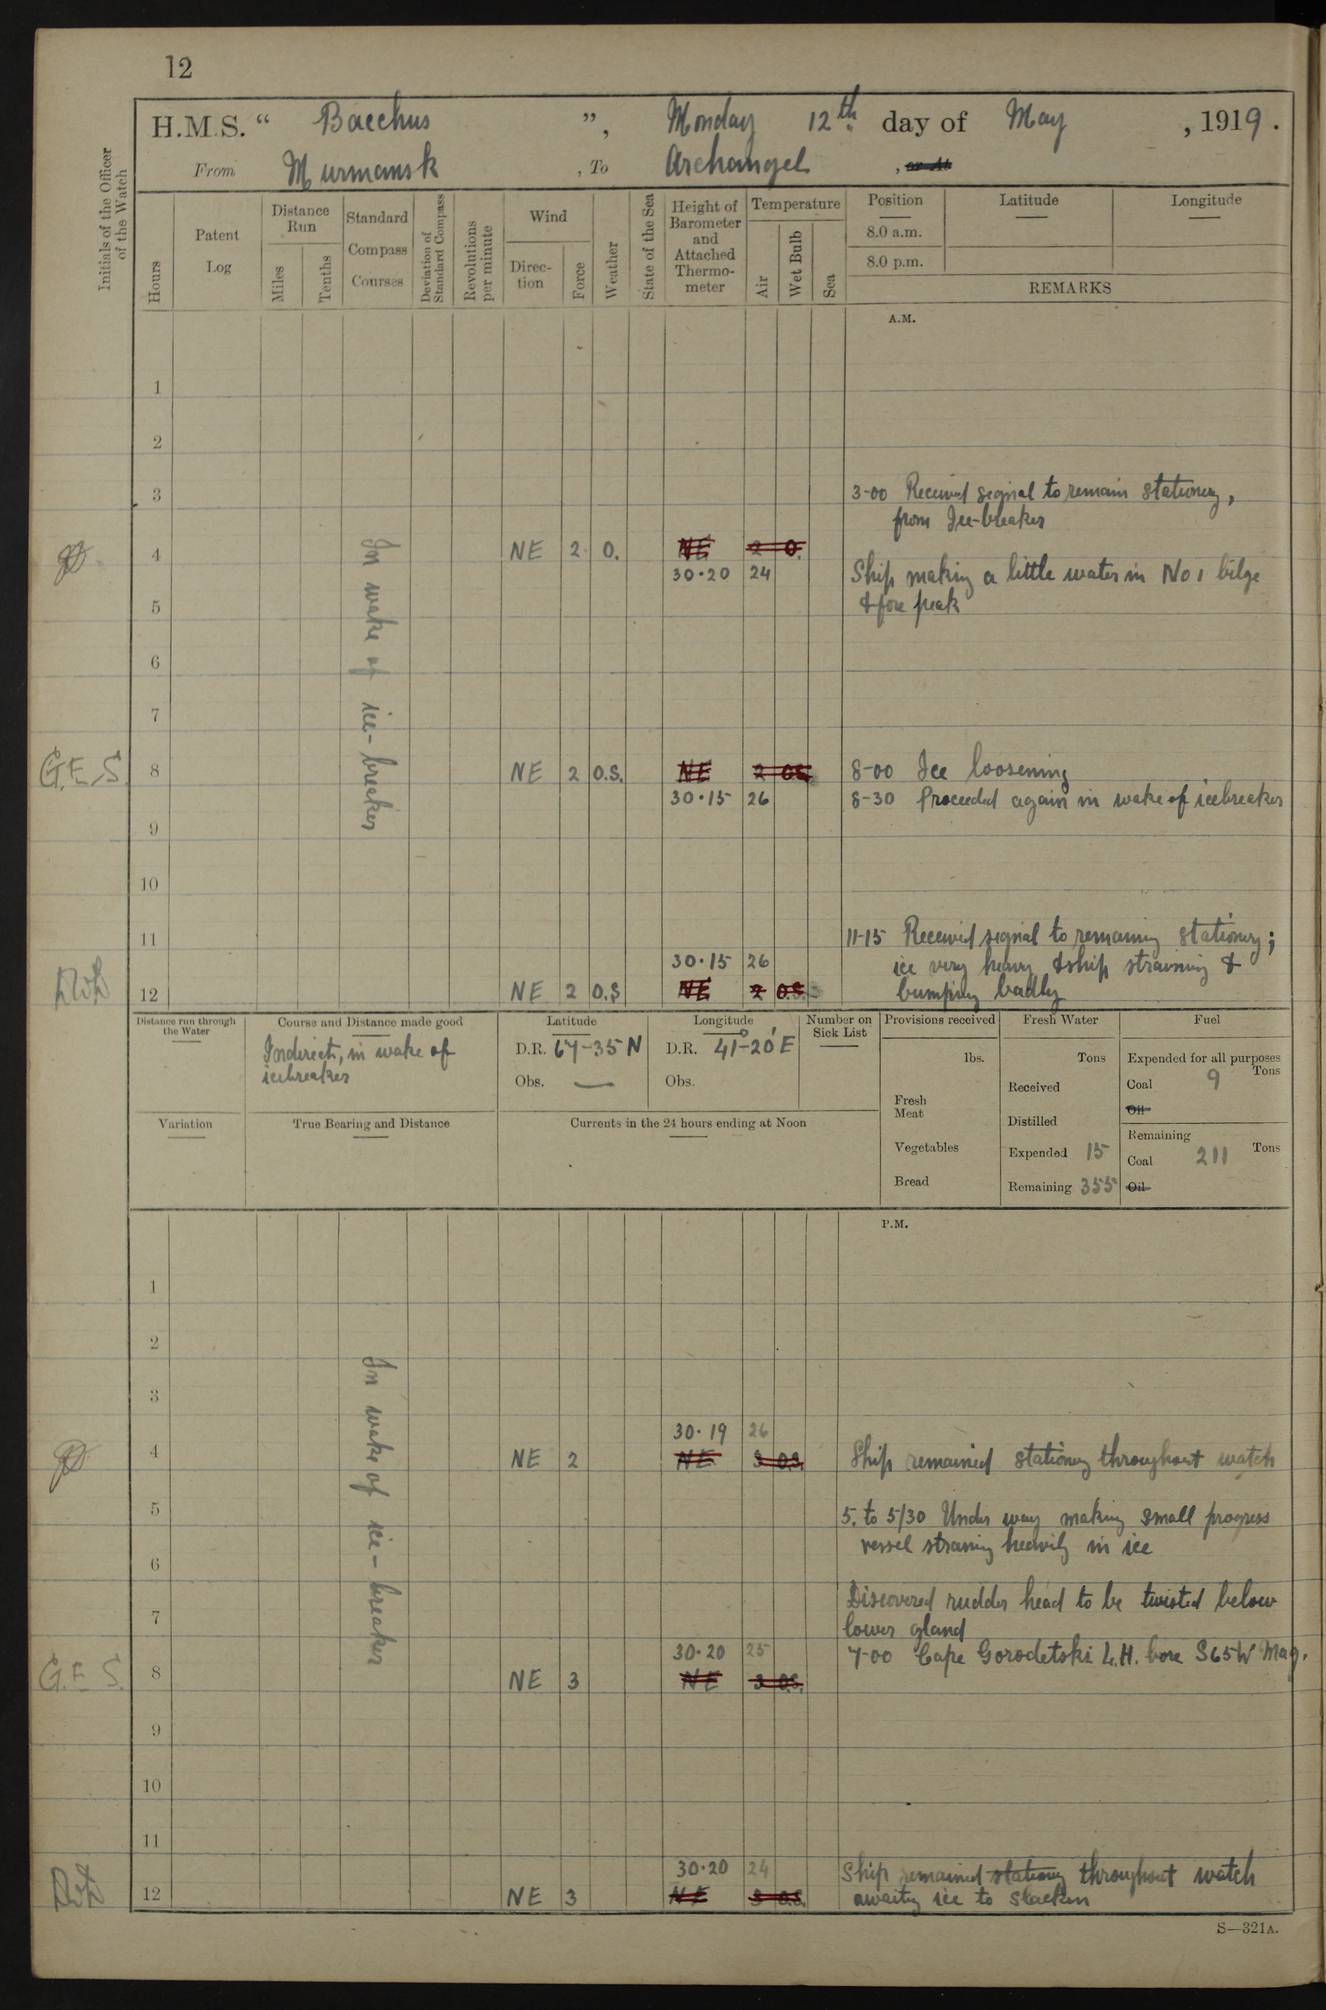 12
H.M.S. “ Bacchus ”, Monday 12th day of May, 1919.
From Murmansk, To Archangel, or At
Initials of the Officer of the Watch
Hours
Patent Log
Distance Run
Miles
Tenths
Standard Compass Courses
Deviation of Standard Compass
Revolutions per minute
Wind
Direction
Force
Weather
State of the Sea
Height of Barometer and Attached Thermometer
Temperature
Air
Wet Bulb
Sea
Position
Latitude
Longitude
8.0 a.m.
8.0 p.m.
REMARKS
A.M.
1
2
3 3-00 Received signal to remain stationery,
from Ice-breaker
4 NE 2 O. NE 2 O.
30.20 24 Ship making a little water in No 1 bilge
& fore peak
In wake of ice-breaker
5
6
7
G.E.S. 8 NE 2 O.S. NE 2 O.S. 8-00 Ice loosening
30.15 26 8-30 Proceeded again in wake of icebreaker
9
10
11 11-15 Received signal to remaining stationery;
30.15 26 ice very heavy & ship straining &
12 NE 2 O.S NE 2 O.S. bumping badly
Distance run through the Water
Course and Distance made good
Indirect, in wake of
icebreaker
Latitude
D.R. 67-35 N
Obs. —
Longitude
D.R. 41°-20' E
Obs.
Number on Sick List
Provisions received
lbs.
Fresh Meat
Vegetables
Bread
Fresh Water
Tons
Received
Distilled
Expended 15
Remaining 355
Fuel
Expended for all purposes
Tons
Coal 9
Oil
Remaining
Coal 211 Tons
Oil
Variation
True Bearing and Distance
Currents in the 24 hours ending at Noon
P.M.
1
2
3
In wake of ice-breaker
30.19 26
4 NE 2 NE 3 O.S. Ship remained stationery throughout watch
5 5. to 5/30 Under way making small progress
vessel straining heavily in ice
6
Discovered rudder head to be twisted below
7 lower gland
30.20 25 7-00 Cape Gorodetski L.H. bore S65W Mag.
G.E.S. 8 NE 3 NE 3 O.S.
9
10
11
30.20 24 Ship remained stationery throughout watch
12 NE 3 NE 3 O.S. awaiting ice to slacken
S—321A.